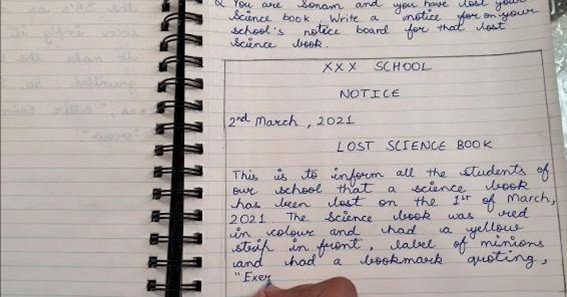 Q. You are Sonam and you have lost your
Science book. Write a notice for on your
school's notice board for that lost
Science book.
XXX SCHOOL
NOTICE
2nd March, 2021
LOST SCIENCE BOOK
This is to inform all the students of
our school that a science book
has been lost on the 1st of March,
2021. The Science book was red
in colour and had a yellow
strip in front, label of minions
and had a bookmark quoting,
"Exer